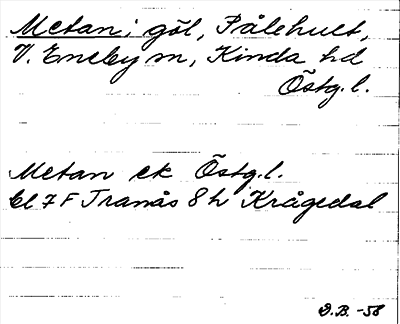 Metan; göl, Pålehult,
V. Eneby sn, Kinda hd
Östg. l.
Metan ek Östg. l.
bl 7 F Tranås 8 h Krågedal
D.B. -58